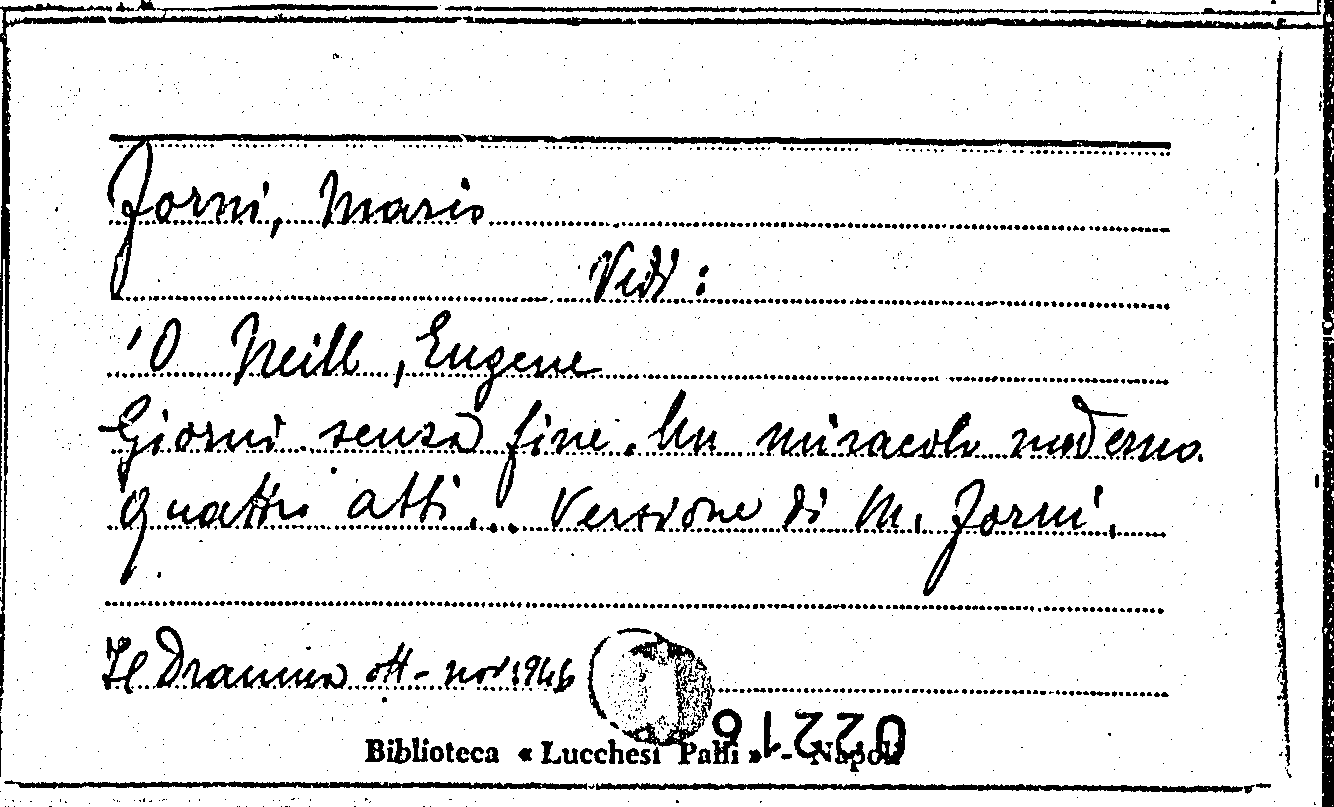 Jorni, Mario
Vedi:
'O Neill, Eugene
Giorni senza fine. Un miracolo moderno.
Quattro atti... Versione di M. Jorni.
Il Dramma ott-nov. 1946
Biblioteca « Lucchesi Palli » - Napoli